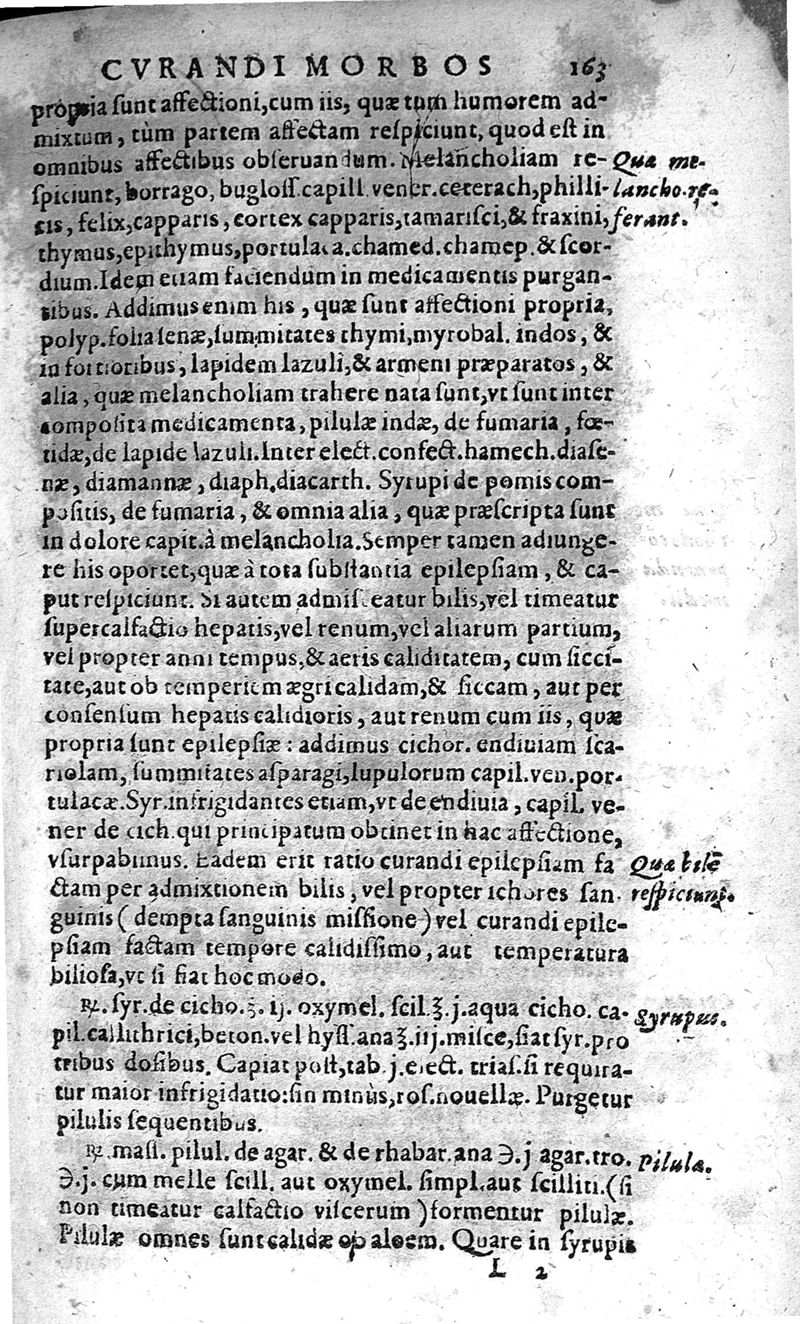 CVRANDI MORBOS 163
propria sunt affectioni,cum iis, quæ tum humorem ad-
mixtum, tùm partem affectam respiciunt, quod est in
omnibus affectibus obseruandum. Melancholiam re-
spiciunt, borrago, bugloss.capill.vener.ceterach,philli-
tis, felix,capparis, cortex capparis,tamarisci,& fraxini,
Quæ me-
lancho.re-
ferant.
thymus,epithymus,portulaca.chamed.chamep.& scor-
dium.Idem etiam faciendum in medicamentis purgan-
tibus. Addimus enim his, quæ sunt affectioni propria,
polyp.folia senæ,summitates thymi,myrobal. indos, &
in fortioribus, lapidem lazuli,& armeni præparatos, &
alia, quæ melancholiam trahere nata sunt,vt sunt inter
composita medicamenta, pilulæ indæ, de fumaria, fœ-
tidæ,de lapide lazuli.Inter elect.confect.hamech.diase-
næ, diamannæ, diaph.diacarth. Syrupi de pomis com-
positis, de fumaria, & omnia alia, quæ præscripta sunt
in dolore capit.à melancholia.Semper tamen adiunge-
re his oportet,quæ à tota substantia epilepsiam, & ca-
put respiciunt. Si autem admisceatur bilis,vel timeatur
supercalfactio hepatis,vel renum,vel aliarum partium,
vel propter anni tempus,& aeris caliditatem, cum sicci-
tate,aut ob temperiem ægri calidam,& siccam, aut per
consensum hepatis calidioris, aut renum cum iis, quæ
propria sunt epilepsiæ: addimus cichor. endiuiam sca-
riolam, summitates asparagi,lupulorum capil.ven.por-
tulacæ.Syr.infrigidantes etiam,vt de endiuia, capil. ve-
ner de cich.qui principatum obtinet in hac affectione,
vsurpabimus. Eadem erit ratio curandi epilepsiam fa
ctam per admixtionem bilis, vel propter ichores san-
Quæ bilē
respiciunt.
guinis (dempta sanguinis missione) vel curandi epile-
psiam factam tempore calidissimo, aut temperatura
biliosa,vt si fiat hoc modo.
℞. syr.de cicho.ʒ. ij. oxymel. scil.℥.j.aqua cicho. ca-
Syrupus.
pil.callithrici,beton.vel hyss.ana℥.iij.misce,fiat syr.pro
tribus dosibus. Capiat post,tab.j.elect. trias.si requira-
tur maior infrigidatio:sin minùs,ros.nouellæ. Purgetur
pilulis sequentibus.
℞.mass. pilul. de agar. & de rhabar.ana ℈.j agar.tro.
Pilulæ.
℈.j. cum melle scill. aut oxymel. simpl.aut scilliti.(si
non timeatur calfactio viscerum) formentur pilulæ.
Pilulæ omnes sunt calidæ ob aloem. Quare in syrupis
L 2